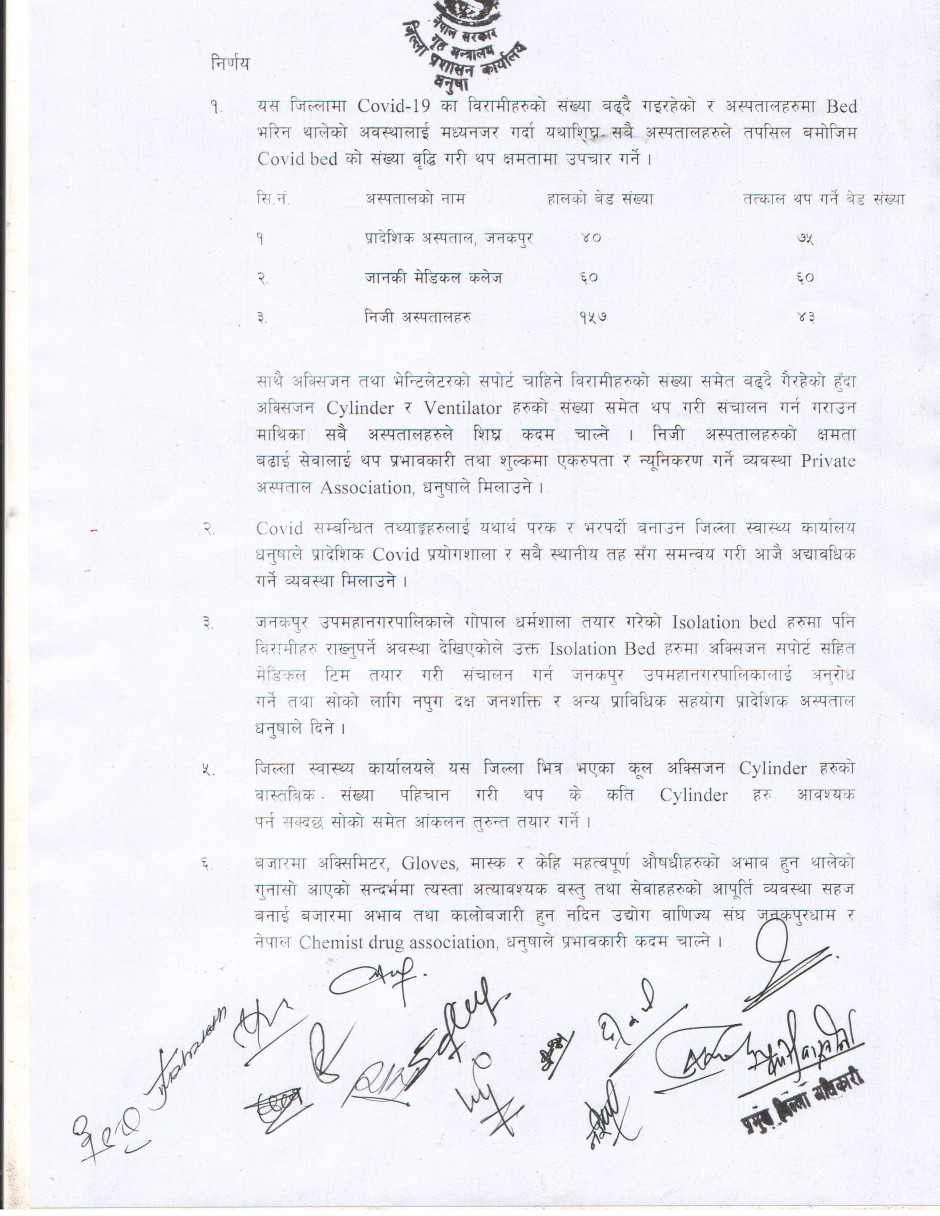 नेपाल सरकार
गृह मन्त्रालय
जिल्ला प्रशासन कार्यालय
धनुषा
निर्णय
१. यस जिल्लामा Covid-19 का विरामीहरुको संख्या बढ्दै गइरहेको र अस्पतालहरुमा Bed
भरिन थालेको अवस्थालाई मध्यनजर गर्दा यथाशिघ्र सबै अस्पतालहरुले तपसिल बमोजिम
Covid bed को संख्या वृद्धि गरी थप क्षमतामा उपचार गर्ने ।
सि.नं. अस्पतालको नाम हालको बेड संख्या तत्काल थप गर्ने बेड संख्या
१ प्रादेशिक अस्पताल, जनकपुर ४० ७५
२. जानकी मेडिकल कलेज ६० ६०
३. निजी अस्पतालहरु १५७ ४३
साथै अक्सिजन तथा भेन्टिलेटरको सपोर्ट चाहिने विरामीहरुको संख्या समेत बढ्दै गैरहेको हुँदा
अक्सिजन Cylinder र Ventilator हरुको संख्या समेत थप गरी संचालन गर्न गराउन
माथिका सबै अस्पतालहरुले शिघ्र कदम चाल्ने । निजी अस्पतालहरुको क्षमता
बढाई सेवालाई थप प्रभावकारी तथा शुल्कमा एकरुपता र न्यूनिकरण गर्ने व्यवस्था Private
अस्पताल Association, धनुषाले मिलाउने ।
२. Covid सम्बन्धित तथ्याङ्कहरुलाई यथार्थ परक र भरपर्दो बनाउन जिल्ला स्वास्थ्य कार्यालय
धनुषाले प्रादेशिक Covid प्रयोगशाला र सबै स्थानीय तह सँग समन्वय गरी आजै अद्यावधिक
गर्ने व्यवस्था मिलाउने ।
३. जनकपुर उपमहानगरपालिकाले गोपाल धर्मशाला तयार गरेको Isolation bed हरुमा पनि
विरामीहरु राख्नुपर्ने अवस्था देखिएकोले उक्त Isolation Bed हरुमा अक्सिजन सपोर्ट सहित
मेडिकल टिम तयार गरी संचालन गर्न जनकपुर उपमहानगरपालिकालाई अनुरोध
गर्ने तथा सोको लागि नपुग दक्ष जनशक्ति र अन्य प्राविधिक सहयोग प्रादेशिक अस्पताल
धनुषाले दिने ।
५. जिल्ला स्वास्थ्य कार्यालयले यस जिल्ला भित्र भएका कूल अक्सिजन Cylinder हरुको
वास्तविक संख्या पहिचान गरी थप के कति Cylinder हरु आवश्यक
पर्न सक्दछ सोको समेत आंकलन तुरुन्त तयार गर्ने ।
६. बजारमा अक्सिमिटर, Gloves, मास्क र केहि महत्वपूर्ण औषधीहरुको अभाव हुन थालेको
गुनासो आएको सन्दर्भमा त्यस्ता अत्यावश्यक वस्तु तथा सेवाहहरुको आपूर्ति व्यवस्था सहज
बनाई बजारमा अभाव तथा कालोबजारी हुन नदिन उद्योग वाणिज्य संघ जनकपुरधाम र
नेपाल Chemist drug association, धनुषाले प्रभावकारी कदम चाल्ने ।
प्रमुख जिल्ला अधिकारी